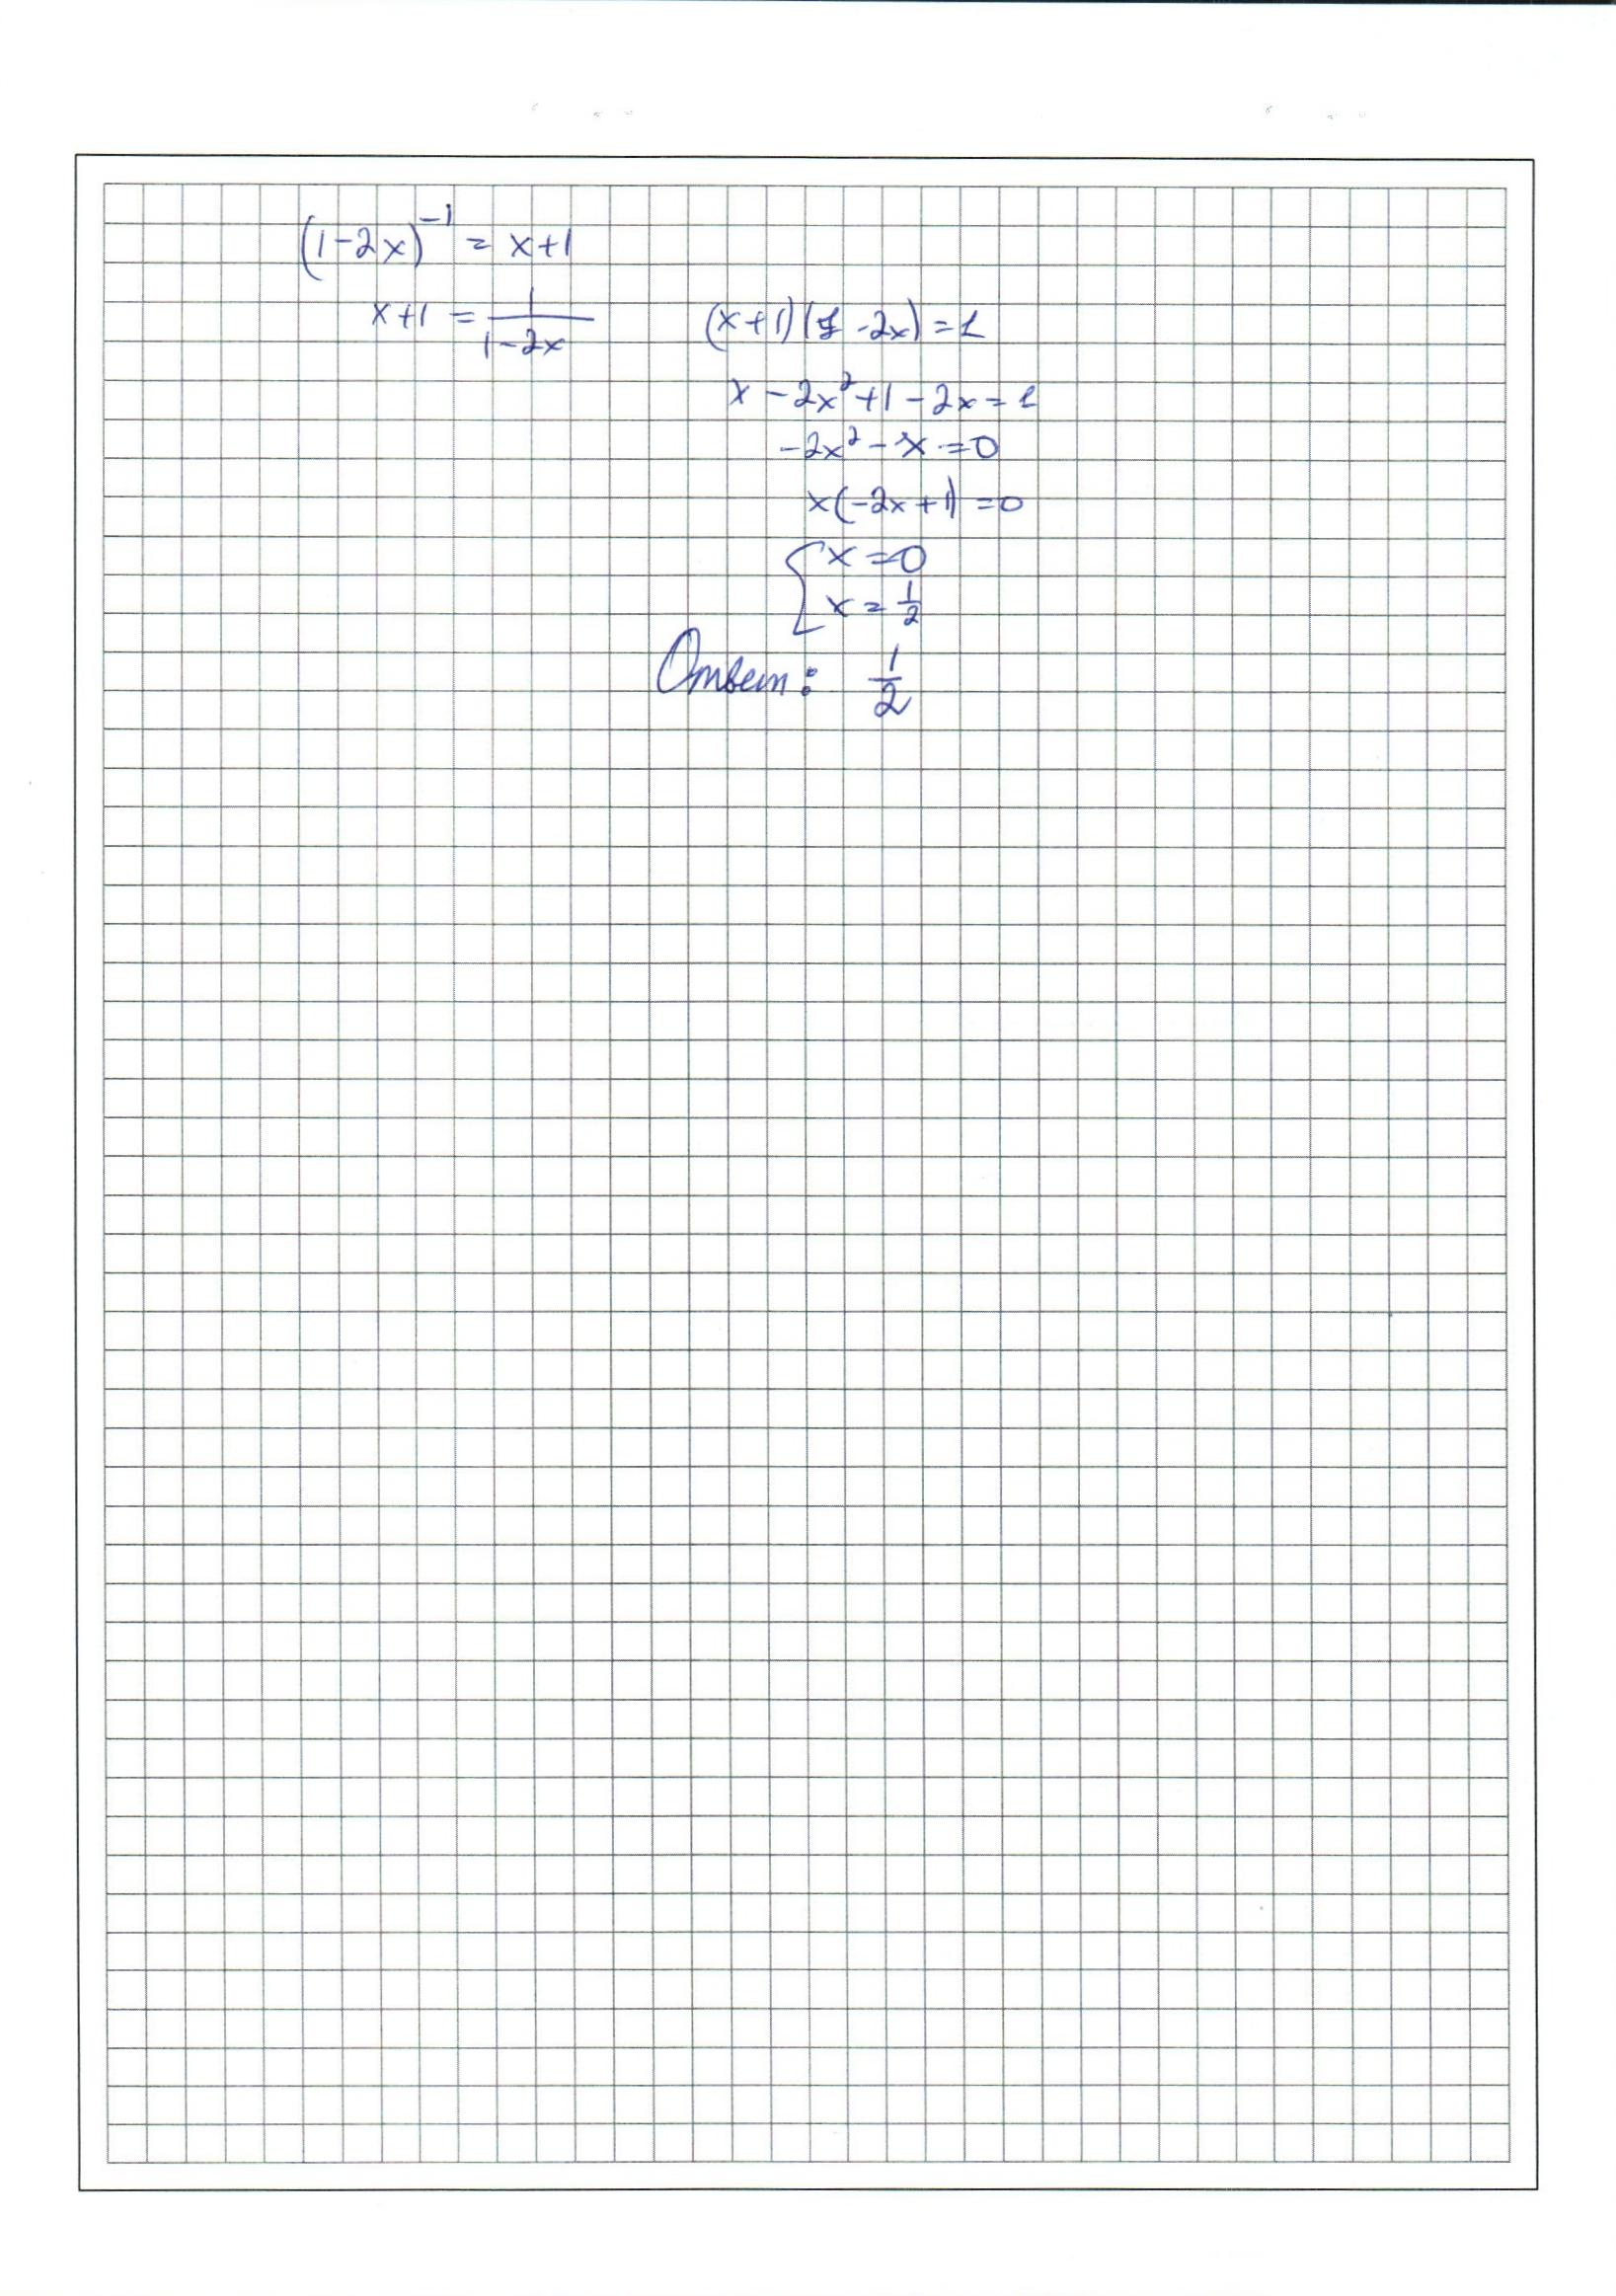 (1-2x)^{-1} = x+1
x+1 = \frac{1}{1-2x}
(x+1)(1-2x)=1
x-2x^2+1-2x=1
-2x^2-x=0
x(-2x+1)=0
x=0
x=\frac{1}{2}
Ответ: \frac{1}{2}